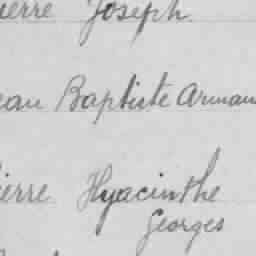 ierre Joseph
ean Baptiste Arman
ierre Hyacinthe
Georges